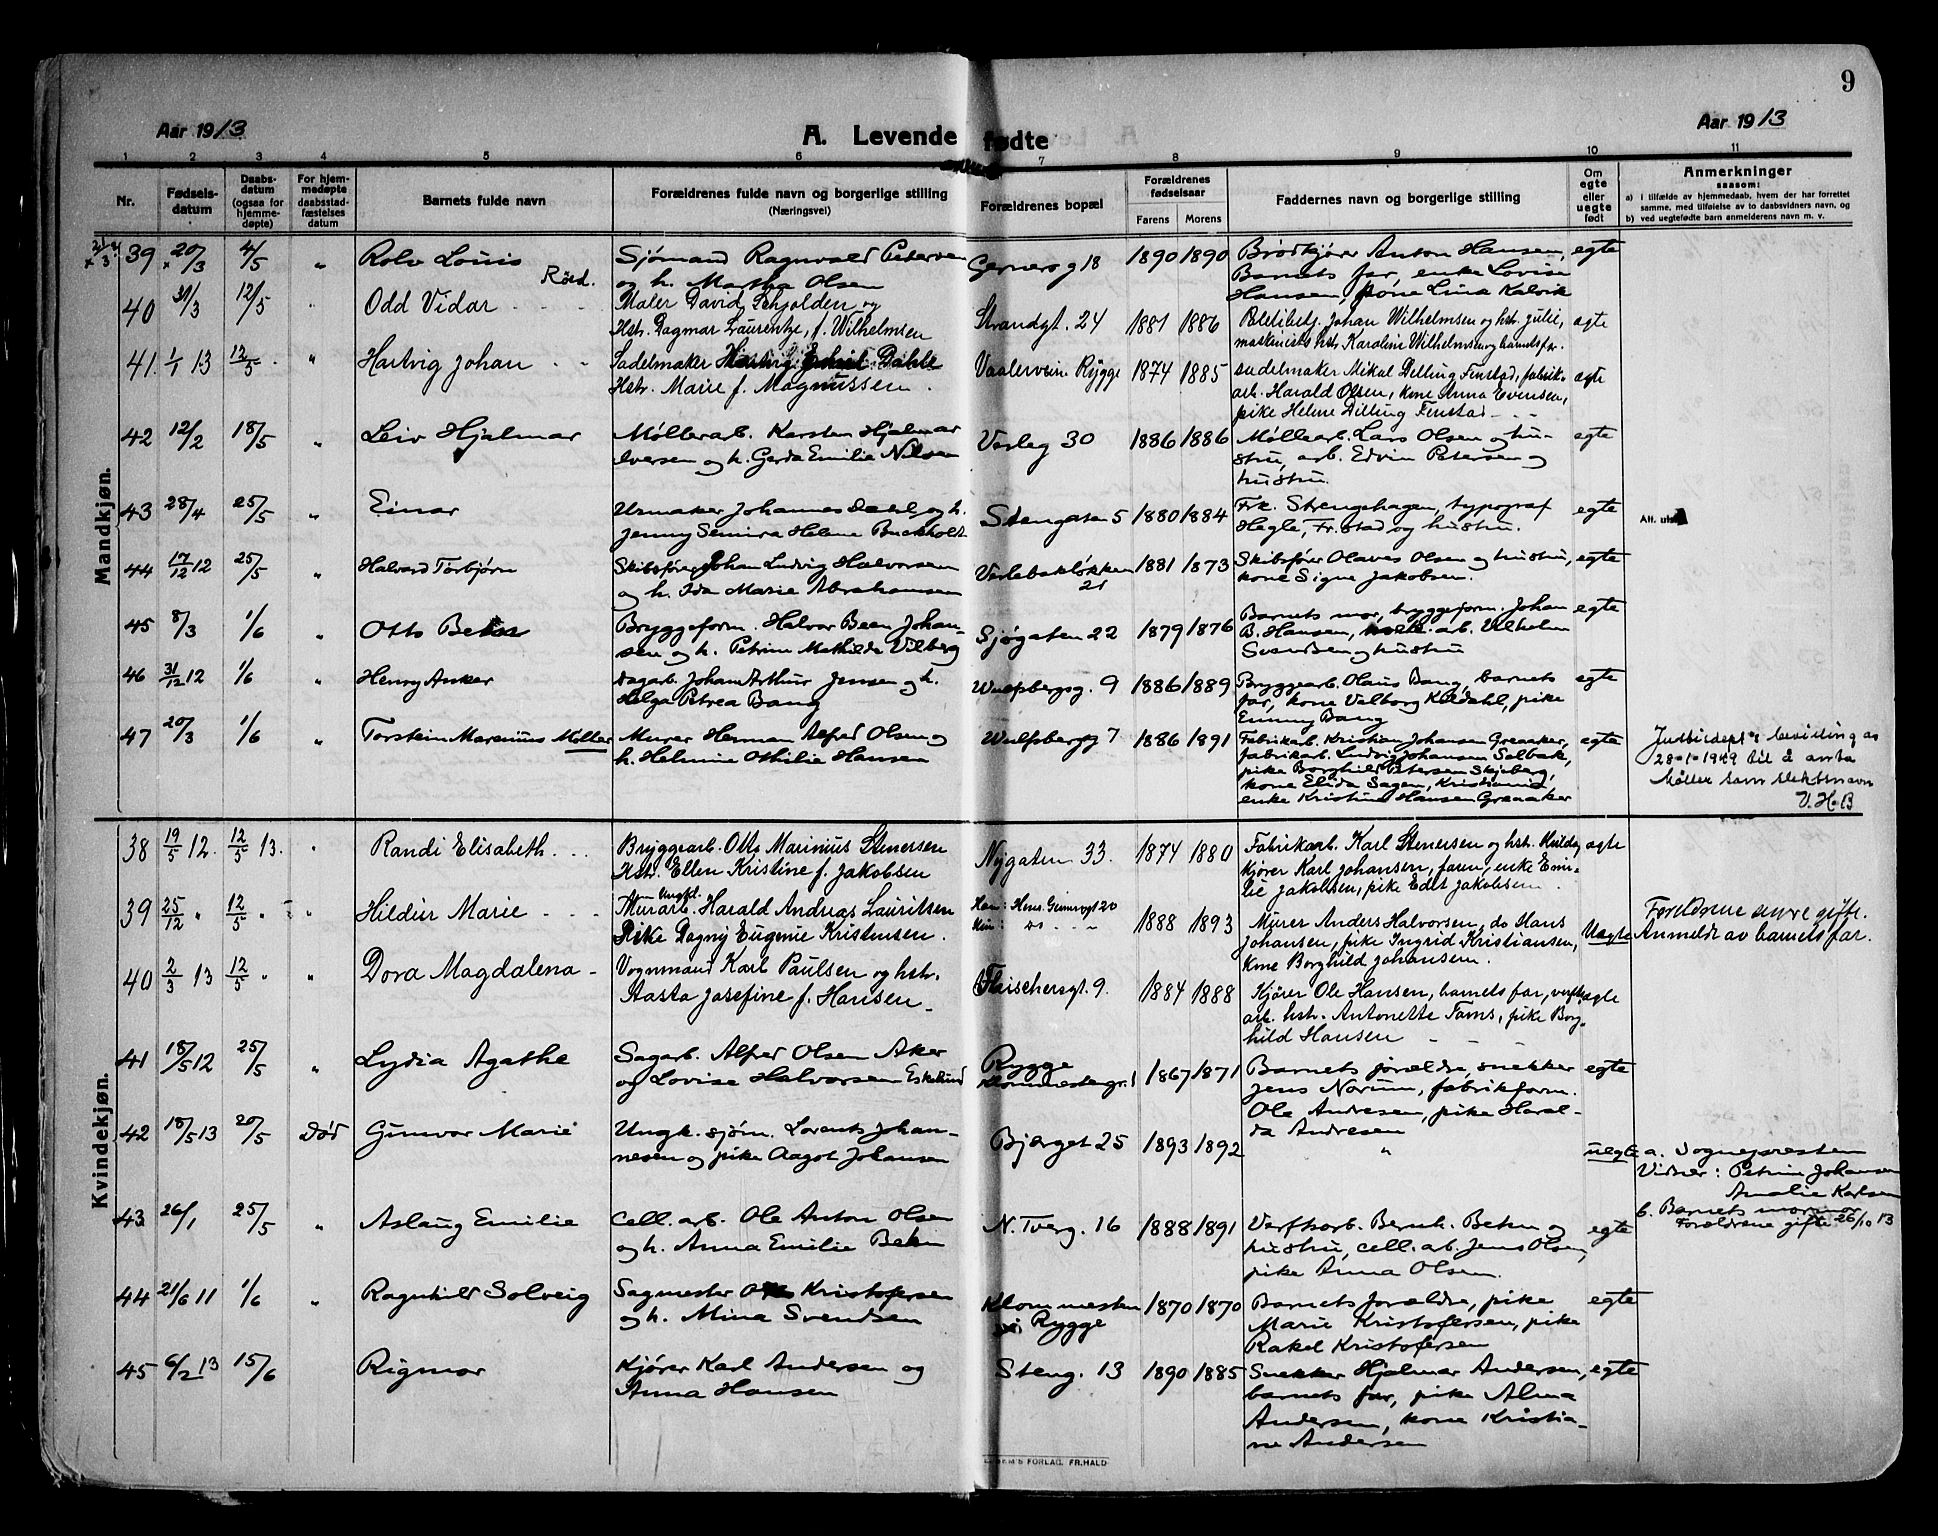 9
Aar 1913
A. Levende fødte
Aar 1913
1 2 3 4 5 6 7 8 9 10 11
Nr.
Fødsels-
datum
Daabs-
datum
(ogsaa for
hjemme-
døpte)
For hjem-
medøpte
daabsstad-
fæstelses
datum
Barnets fulde navn
Forældrenes fulde navn og borgerlige stilling
(Næringsvei)
Forældrenes bopæl
Forældrenes
fødselsaar
Farens Morens
Faddernes navn og borgerlige stilling
Om
egte
eller
uegte
født
Anmerkninger
saasom:
a) i tilfælde av hjemmedaab, hvem der har forrettet
samme, med tilføielse av to daabsvidners navn, og
b) ved uegtefødte barn anmelderens navn m. v.
Mandkjøn.
39 20/3 4/5 " Rolv Louis Sjømand Ragnvald Petersen Gernersg 18 1890 1890 Brødkjører Anton Hansen, egte
Røed. og h. Martha Olsen Barnets far, enke Lovise
Hansen, frøne Lina Kalvik
40 31/3 12/5 " Odd Vidar Maler David Schjolden og
Hstr. Dagmar Laurentze, f. Wilhelmsen Strandgt. 24 1881 1886 Johan Wilhelmsen og hst. Julie, egte
maskinists hst. Karoline Wilhelmsen og barnets far.
41. 1/1 13 12/5 " Hartvig Johan Sadelmaker Hartvig Johan Dahle Vaalerveien Rygge 1874 1885 sadelmaker Mikal Dilling Finstad, fabrik- egte
Hstr. Marie f. Magnussen. arb. Harald Olsen, kone Anna Evensen,
pike Helene Dilling Finstad
42 12/2 18/5 " Leiv Hjalmar Møllerarb. Karsten Hjalmar Verleg 30 1886 1886 Møllearb. Lars Olsen og hu- egte
Iversen og h. Gerda Emilie Nilsen stru, arb. Edvin Petersen og
hustru.
43 28/4 25/5 " Einar Urmaker Johannes Dahl og h. Stengaten 5 1880 1884 Frk. Strengehagen, typograf egte Att. uts
Jenny Semira Helene Buckholdt Hegle, Fr.stad og hustru.
44 17/12 12 25/5 " Halvard Torbjørn Skibsfører Johan Ludvig Halvorsen Verlebakløkken 1881 1873 Skibsfører Olaves Olsen og hustru, egte
og h. Ida Marie Abrahamsen 21 kone Signe Jakobsen.
45 8/3 1/6 " Otto Bryggeform. Halvar Been Johan- Sjøgaten 22 1879 1876 Barnets mor, bryggeform. Johan egte
sen og h. Petrine Mathilde Vilberg B. Hansen, arb. Vilhelm
Svendsen og hustru
46 31/12 12 1/6 " Henry Anker Sagarb. Johan Arthur Jensen og h. Wulfsbergsg. 9 1886 1889 Bryggearb. Olaus Bang, barnets egte
Helga Petrea Bang far, kone Valborg Koldahl, pike
Emmy Bang
47 20/3 1/6 " Torstein Marenius Møller Murer Herman Alfred Olsen og Wulfsbergg 7 1886 1891 Fabrikarb. Kristian Johansen Greaaker, egte Justisdept's bevilling av
h. Helmine Othilie Hansen fabrikarb. Ludvig Johansen Solbak, 28-1-1949 til å anta
pike Borghild Petersen Skjeberg, Møller som slektsnavn
kone Elida Sagen, Kristiania, V.H.B
enke Kristine Hansen Greaaker
Kvindekjøn.
38 19/5 12. 12/5 13. " Randi Elisabeth Bryggearb. Otto Marinius Stenersen Nygaten 33. 1874 1880 Fabrikarb. Karl Stenersen og hst. Hulda, egte
Hstr. Ellen Kristine f. Jakobsen kjører Karl Johansen, faren, enke Emi-
lie Jakobsen, pike Edit Jakobsen
39 25/12 " 12/5 " " Hildur Marie Ungk. Murarb. Harald Andreas Lauritsen Han: Hens. Gernersgt 20 1888 1893 Murer Anders Halvorsen, do Hans Uegte Forældrene senere gifte.
Pike Dagny Eugenie Kristensen. Hun: do Johansen, pike Ingrid Kristiansen, Anmeldt av barnets far.
kone Borghild Johansen.
40 2/3 13 12/5 " " Dora Magdalena Vognmand Karl Paulsen og hstr. Fleischersgt. 9. 1884 1888 Kjører Ole Hansen, barnets far, verfts- egte
Aasta Josefine f. Hansen arb. hstr. Antonette Fams, pike Borg-
hild Hansen
41 18/5 12 25/5 " Lydia Agathe Sagarb. Alfred Olsen Aker Rygge 1867 1871 Barnets forældre, snekker egte
og Lovise Halvorsen Eskelund Klommestengr. 1 Jens Norum, fabrikform.
Ole Andresen, pike Haral-
da Andresen
42 18/5 13 20/5 Død Gunvor Marie Ungk. sjøm. Lorents Johan- Bjerget 25 1893 1892 " uegte a. Sognepresten
nesen og pike Aagot Johansen Vidner: Petrine Johansen
Amalie Karlsen
b. Barnets mormor
Forældrene gifte 26/10 13
43 26/1 25/5 " Aslaug Emilie Cell. arb. Ole Anton Olsen N. Tverg. 16 1888 1891 Verftsarb. Bernh. Beken og egte
og h. Anna Emilie Beken hustru, cell. arb. Jens Olsen,
pike Anna Olsen.
44 21/6 11 1/6 " Ragnhild Solveig Sagmester Kristofersen Klommesten 1870 1870 Barnets forældre, pike egte
og h. Mina Svendsen i Rygge Marie Kristofersen, pike
Rakel Kristofersen
45 6/2 13 15/6 Rigmor Kjører Karl Andersen og Steng. 13 1890 1885 Snekker Hjalmar Andersen, egte
Anna Hansen barnets far, pike Alma
Andersen, kone Kristia-
ne Andersen
FORLAG, FR.HALD